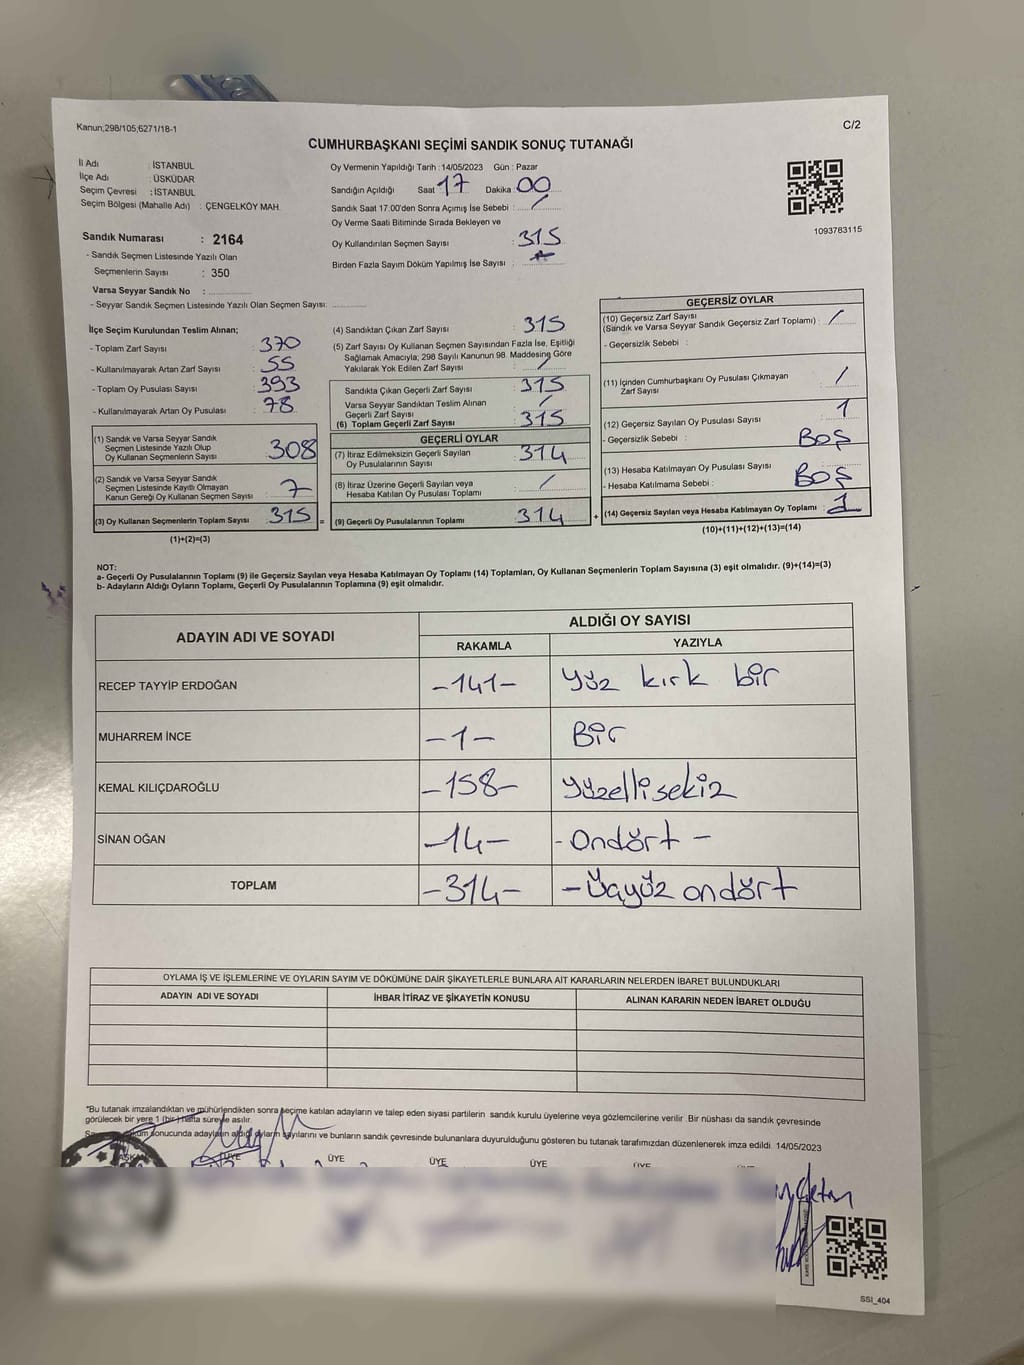 Kanun;298/105,6271/18-1
C/2
CUMHURBAŞKANI SEÇİMİ SANDIK SONUÇ TUTANAĞI
İl Adı : İSTANBUL
İlçe Adı : ÜSKÜDAR
Seçim Çevresi : İSTANBUL
Seçim Bölgesi (Mahalle Adı) : ÇENGELKÖY MAH.
Oy Vermenin Yapıldığı Tarih : 14/05/2023 Gün : Pazar
Sandığın Açıldığı Saat 17 Dakika : 00
Sandık Saat 17:00'den Sonra Açımış İse Sebebi : /
Oy Verme Saati Bitiminde Sırada Bekleyen ve
Oy Kullandırılan Seçmen Sayısı : 315
Birden Fazla Sayım Döküm Yapılmış İse Sayısı :
1093783115
Sandık Numarası : 2164
- Sandık Seçmen Listesinde Yazılı Olan
Seçmenlerin Sayısı : 350
Varsa Seyyar Sandık No :
- Seyyar Sandık Seçmen Listesinde Yazılı Olan Seçmen Sayısı:
İlçe Seçim Kurulundan Teslim Alınan;
- Toplam Zarf Sayısı : 370
- Kullanılmayarak Artan Zarf Sayısı : 55
- Toplam Oy Pusulası Sayısı : 393
- Kullanılmayarak Artan Oy Pusulası : 78
(1) Sandık ve Varsa Seyyar Sandık
Seçmen Listesinde Yazılı Olup
Oy Kullanan Seçmenlerin Sayısı 308
(2) Sandık ve Varsa Seyyar Sandık
Seçmen Listesinde Kayıtlı Olmayan
Kanun Gereği Oy Kullanan Seçmen Sayısı 7
(3) Oy Kullanan Seçmenlerin Toplam Sayısı 315 =
(1)+(2)=(3)
(4) Sandıktan Çıkan Zarf Sayısı : 315
(5) Zarf Sayısı Oy Kullanan Seçmen Sayısından Fazla İse, Eşitliği
Sağlamak Amacıyla; 298 Sayılı Kanunun 98. Maddesine Göre
Yakılarak Yok Edilen Zarf Sayısı : /
Sandıkta Çıkan Geçerli Zarf Sayısı : 315
Varsa Seyyar Sandıktan Teslim Alınan
Geçerli Zarf Sayısı : /
(6) Toplam Geçerli Zarf Sayısı : 315
GEÇERLİ OYLAR
(7) İtiraz Edilmeksizin Geçerli Sayılan
Oy Pusulalarının Sayısı : 314
(8) İtiraz Üzerine Geçerli Sayılan veya
Hesaba Katılan Oy Pusulası Toplamı : /
(9) Geçerli Oy Pusulalarının Toplamı : 314 +
GEÇERSİZ OYLAR
(10) Geçersiz Zarf Sayısı
(Sandık ve Varsa Seyyar Sandık Geçersiz Zarf Toplamı) : /
- Geçersizlik Sebebi :
(11) İçinden Cumhurbaşkanı Oy Pusulası Çıkmayan
Zarf Sayısı : /
(12) Geçersiz Sayılan Oy Pusulası Sayısı : 1
- Geçersizlik Sebebi : BOŞ
(13) Hesaba Katılmayan Oy Pusulası Sayısı :
- Hesaba Katılmama Sebebi : BOŞ
(14) Geçersiz Sayılan veya Hesaba Katılmayan Oy Toplamı : 1
(10)+(11)+(12)+(13)=(14)
NOT:
a- Geçerli Oy Pusulalarının Toplamı (9) ile Geçersiz Sayılan veya Hesaba Katılmayan Oy Toplamı (14) Toplamları, Oy Kullanan Seçmenlerin Toplam Sayısına (3) eşit olmalıdır. (9)+(14)=(3)
b- Adayların Aldığı Oyların Toplamı, Geçerli Oy Pusulalarının Toplamına (9) eşit olmalıdır.
ADAYIN ADI VE SOYADI
ALDIĞI OY SAYISI
RAKAMLA YAZIYLA
RECEP TAYYİP ERDOĞAN -141- yüz kırk bir
MUHARREM İNCE -1- Bir
KEMAL KILIÇDAROĞLU -158- yüzellisekiz
SİNAN OĞAN -14- - Ondört -
TOPLAM -314- - Üçyüz ondört
OYLAMA İŞ VE İŞLEMLERİNE VE OYLARIN SAYIM VE DÖKÜMÜNE DAİR ŞİKAYETLERLE BUNLARA AİT KARARLARIN NELERDEN İBARET BULUNDUKLARI
ADAYIN ADI VE SOYADI İHBAR İTİRAZ VE ŞİKAYETİN KONUSU ALINAN KARARIN NEDEN İBARET OLDUĞU
*Bu tutanak imzalandıktan ve mühürlendikten sonra seçime katılan adayların ve talep eden siyasi partilerin sandık kurulu üyelerine veya gözlemcilerine verilir. Bir nüshası da sandık çevresinde
görülecek bir yere 1 (bir) hafta süreyle asılır.
sonucunda adayların aldığı oyların sayılarını ve bunların sandık çevresinde bulunanlara duyurulduğunu gösteren bu tutanak tarafımızdan düzenlenerek imza edildi. 14/05/2023
BAŞKAN ÜYE ÜYE ÜYE ÜYE ÜYE
SSI_404